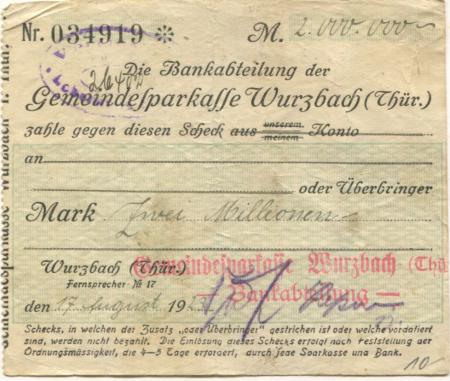 Nr. 034919 * M. 2.000.000
Die Bankabteilung der
Gemeindesparkasse Wurzbach (Thür.)
zahle gegen diesen Scheck aus unserem meinem Konto
an
oder Überbringer
Mark Zwei Millionen
Gemeindesparkasse Wurzbach (Thü
— Bankabteilung —
Wurzbach (Thür.)
Fernsprecher № 17
den 17. August 1923
Schecks, in welchen der Zusatz „oder Überbringer" gestrichen ist oder welche vordatiert
sind, werden nicht bezahlt. Die Einlösung dieses Schecks erfolgt nach Feststellung der
Ordnungsmässigkeit, die 4—5 Tage erfordert, durch jede Sparkasse und Bank.
10
Gemeindesparkasse Wurzbach i. Thür.